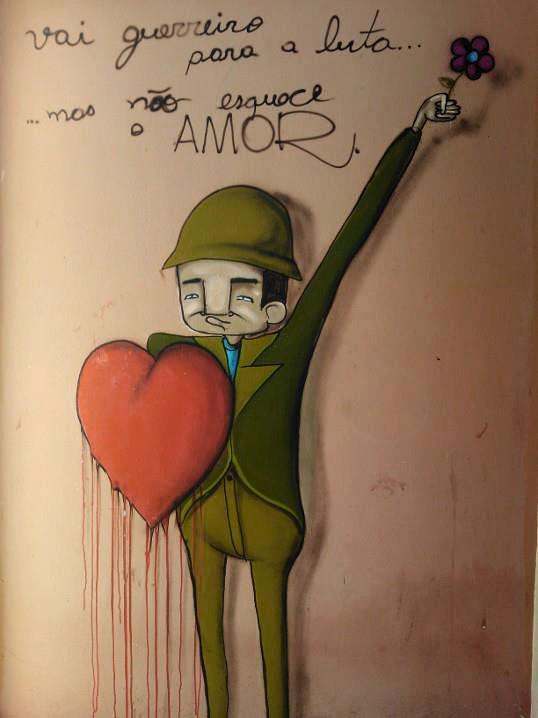 vai guerreiro
para a luta...
...mas não esquece
o AMOR.